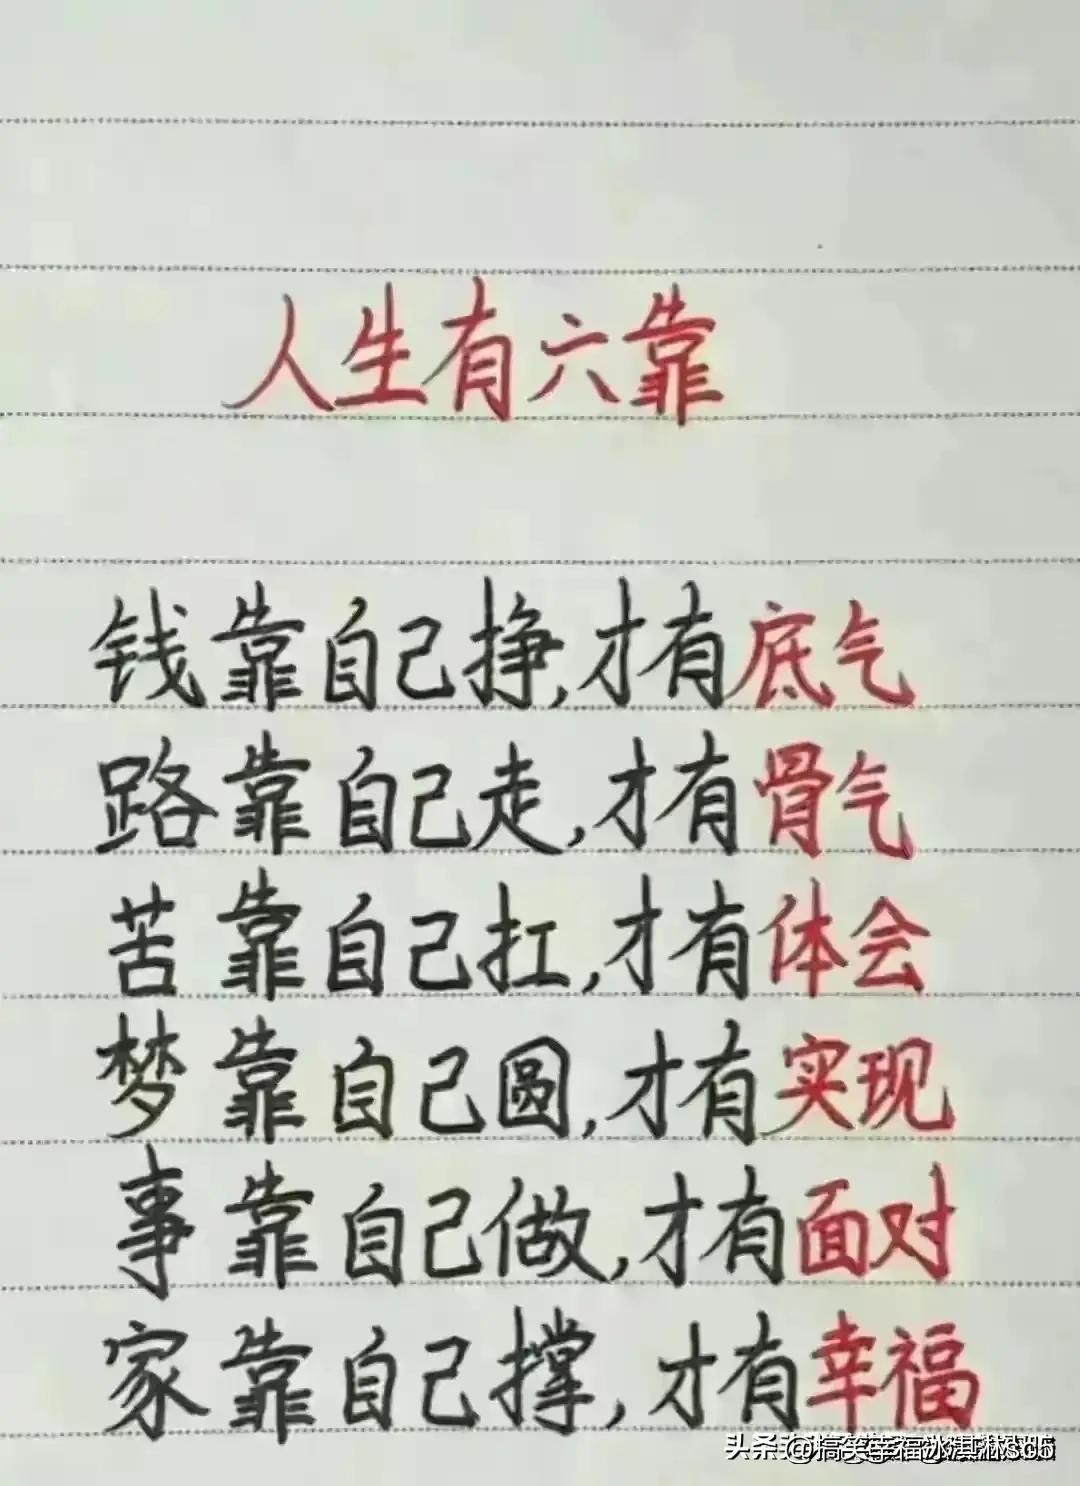 人生有六靠
钱靠自己挣,才有底气
路靠自己走,才有骨气
苦靠自己扛,才有体会
梦靠自己圆,才有实现
事靠自己做,才有面对
家靠自己撑,才有幸福
头条 @搞笑幸福冰淇淋